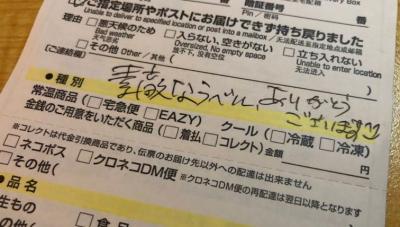 ery Box
ご指定場所やポストにお届けできず持ち戻りました
Unable to deliver to specified location or post into a mailbox / 无法送至指定地点或邮箱
暗証番号
番
理由
悪天候のため
Bad weather
天气恶劣
入らない、空きがない
Oversized, No empty space
地不下，没有空位
立ち入れない
Unable to enter location
无法进入
その他 Other / 其他
(ご連絡欄)
素敵なラベル、ありがとう
ございます
●種別
常温商品（□宅急便 □EAZY） クール（□冷蔵 □冷凍）
金銭のご用意をいただく商品（□着払 □コレクト）金額 円
※コレクトは代金引換商品であり、伝票のお届け先以外への配達は出来ません
□ネコポス □クロネコDM便 ※クロネコDM便の再配達は翌日以降となります
□その他(
●品名
生もの
□食品